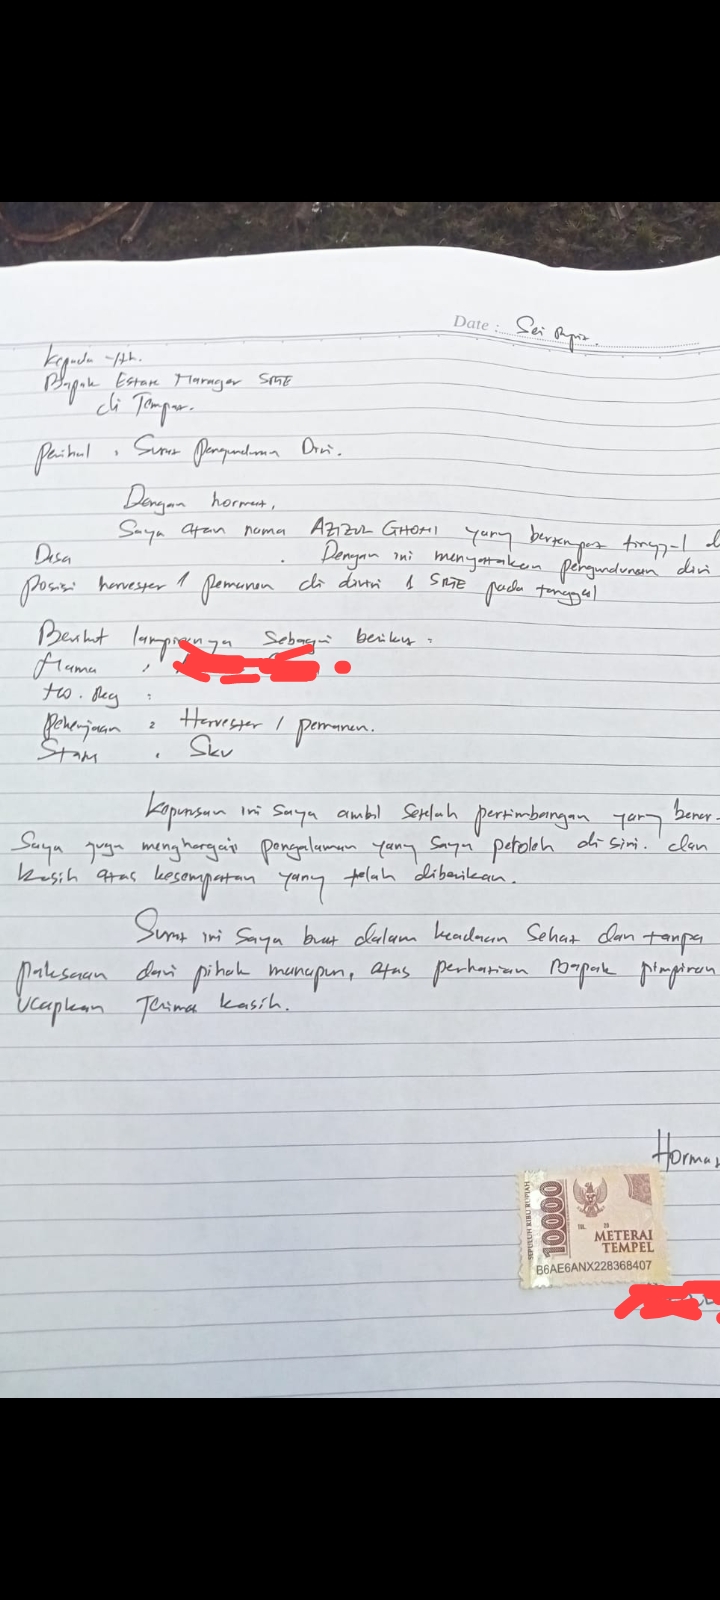 Date : Sei
Kepada Yth.
Bapak Estate Manager SME
di Tempat.
Perihal : Surat Pengunduran Diri.
Dengan hormat,
Saya atan nama AZIZUL GHONI yang bertempat tinggal d
Desa . Dengan ini menyatakan pengunduran diri
posisi harvester / pemanen di divisi 1 SME pada tanggal
Berikut lampirannya sebagai berikut :
Nama :
No. Reg :
Pekerjaan : Harvester / pemanen.
Status : SKU
Keputusan ini saya ambil setelah pertimbangan yang benar-
Saya juga menghargai pengalaman yang saya peroleh disini. dan
kasih atas kesempatan yang telah diberikan.
Surat ini saya buat dalam keadaan sehat dan tanpa
paksaan dari pihak manapun, atas perhatian Bapak pimpinan
Ucapkan Terima kasih.
Hormat
SEPULUH RIBU RUPIAH
10000
TGL. 20
METERAI
TEMPEL
B6AE6ANX228368407